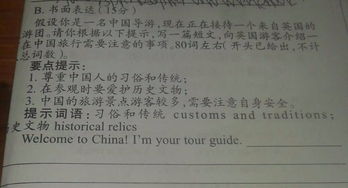 B. 书面表达(15分)
假设你是一名中国导游,现在正在接待一个来自英国的
游团。请你根据以下提示,写一篇短文,向英国游客介绍一
在中国旅行需要注意的事项。80词左右(开头已给出,不计
总词数)。
要点提示:
1. 尊重中国人的习俗和传统;
2. 在参观时要爱护历史文物;
3. 中国的旅游景点游客较多,需要注意自身安全。
提示词语:习俗和传统 customs and traditions;
史文物 historical relics
Welcome to China! I'm your tour guide.